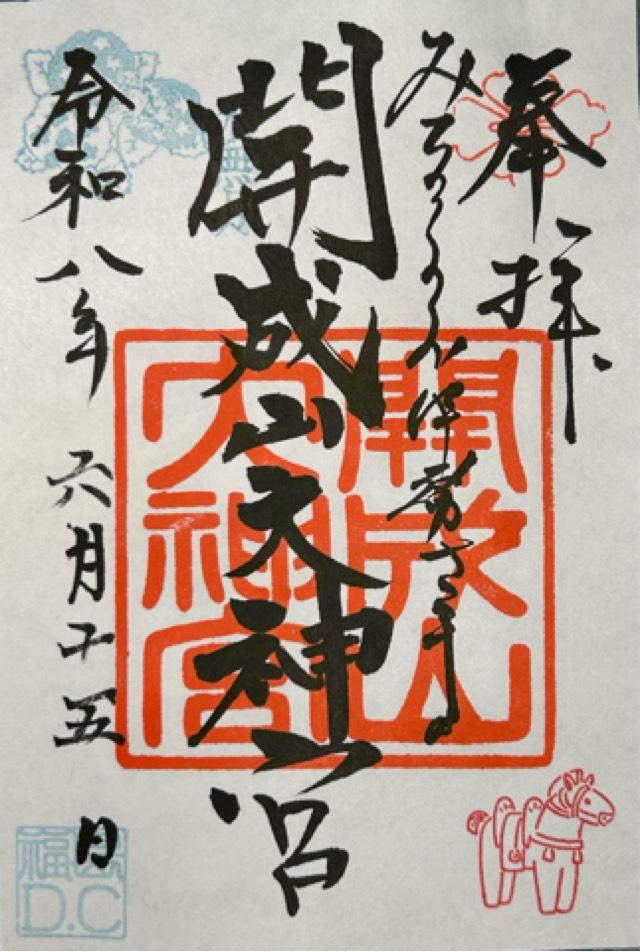 奉拝
みちのくのお伊勢さま
開成山大神宮
令和八年六月十五日
開成山
大神宮
福島
D.C